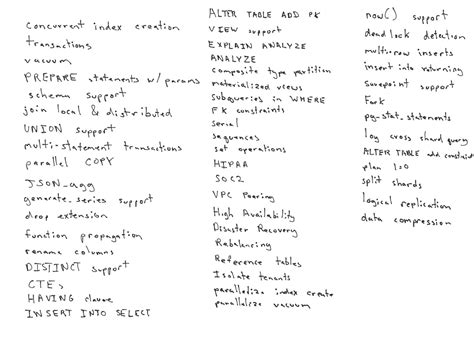 concurrent index creation
transactions
vacuum
PREPARE statements w/ params
schema support
join local & distributed
UNION support
multi-statement transactions
parallel COPY
JSON_agg
generate_series support
drop extension
function propagation
rename columns
DISTINCT support
CTEs
HAVING clause
INSERT INTO SELECT
ALTER TABLE ADD PK
VIEW support
EXPLAIN ANALYZE
ANALYZE
composite type partition
materialized views
subqueries in WHERE
FK constraints
serial
sequences
set operations
HIPAA
SOC2
VPC Peering
High Availability
Disaster Recovery
Rebalancing
Reference tables
Isolate tenants
parallelize index create
parallelize vacuum
now() support
deadlock detection
multirow inserts
insert into returning
savepoint support
Fork
pg_stat_statements
log cross shard query
ALTER TABLE add constraint
plan
split shards
logical replication
data compression